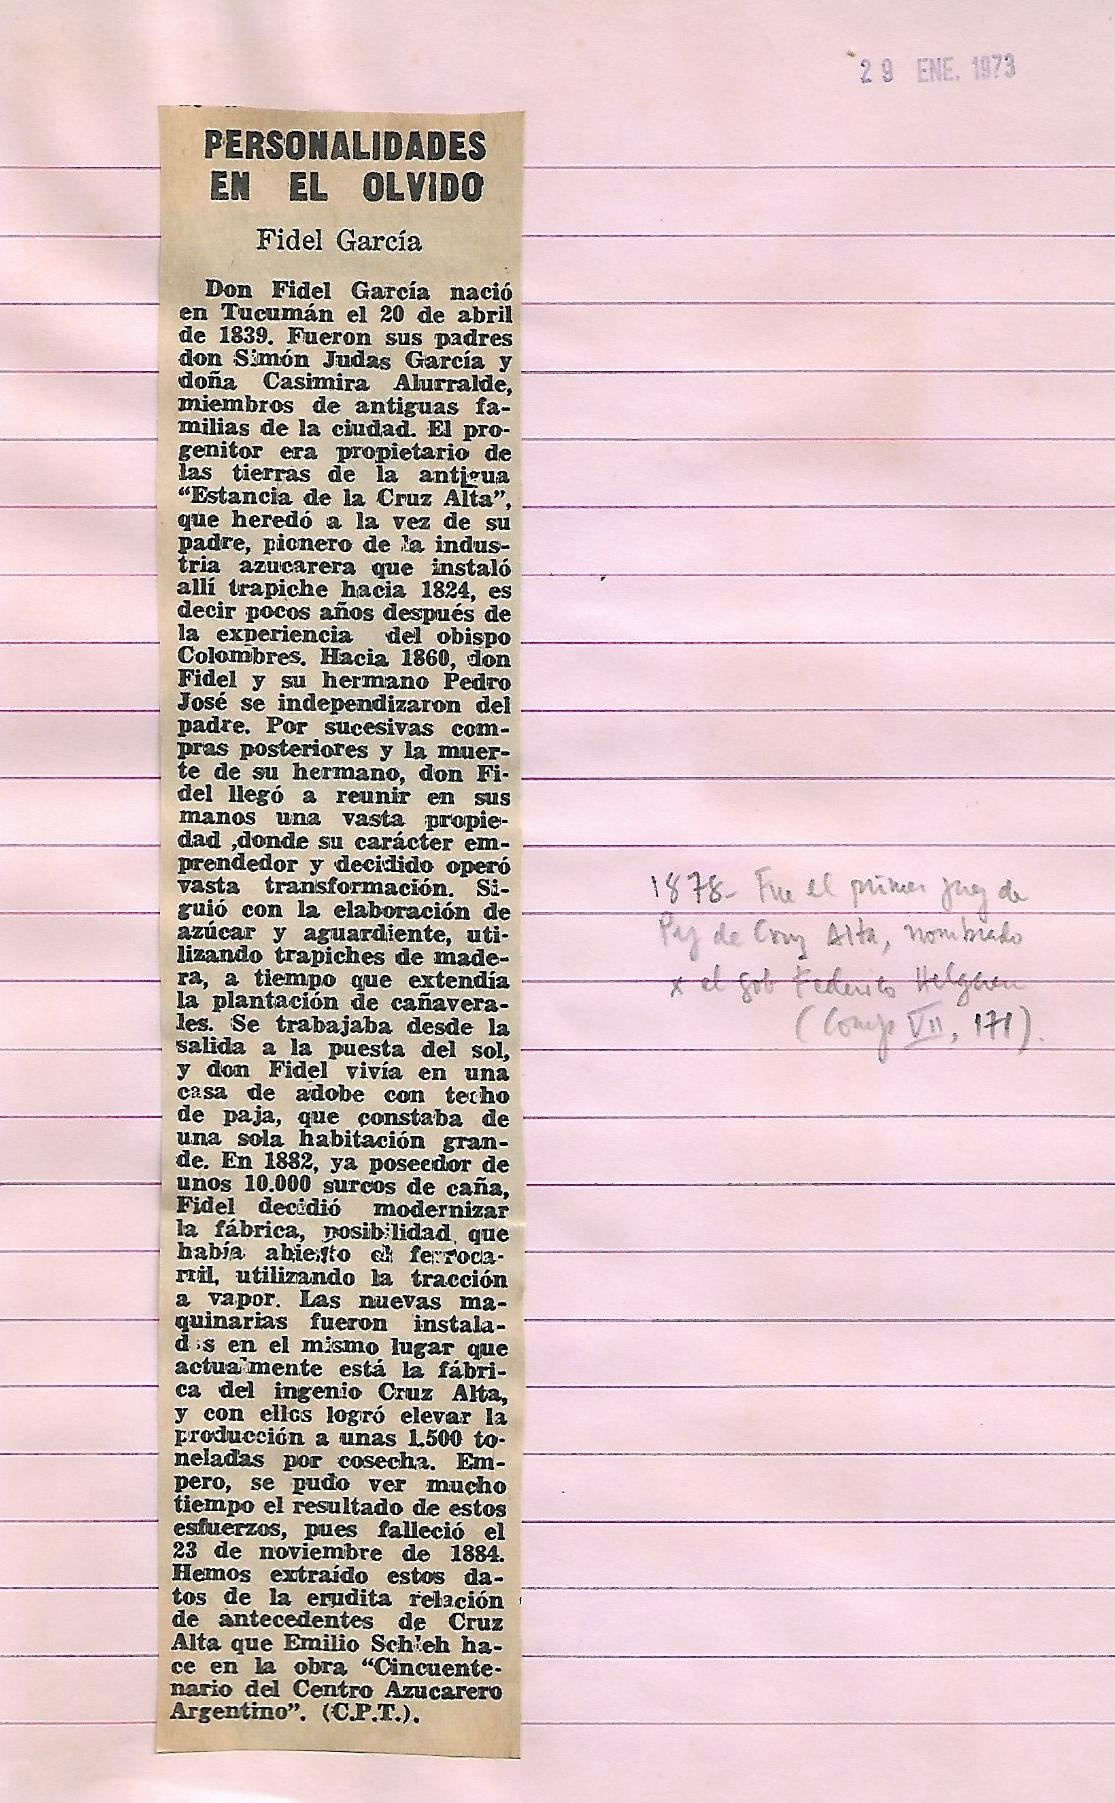 29 ENE. 1973
PERSONALIDADES
EN EL OLVIDO
Fidel García
Don Fidel García nació
en Tucumán el 20 de abril
de 1839. Fueron sus padres
don Simón Judas García y
doña Casimira Alurralde,
miembros de antiguas fa-
milias de la ciudad. El pro-
genitor era propietario de
las tierras de la antigua
“Estancia de la Cruz Alta”,
que heredó a la vez de su
padre, pionero de la indus-
tria azucarera que instaló
allí trapiche hacia 1824, es
decir pocos años después de
la experiencia del obispo
Colombres. Hacia 1860, don
Fidel y su hermano Pedro
José se independizaron del
padre. Por sucesivas com-
pras posteriores y la muer-
te de su hermano, don Fi-
del llegó a reunir en sus
manos una vasta propie-
dad ,donde su carácter em-
prendedor y decidido operó
vasta transformación. Si-
guió con la elaboración de
azúcar y aguardiente, uti-
lizando trapiches de made-
ra, a tiempo que extendía
la plantación de cañavera-
les. Se trabajaba desde la
salida a la puesta del sol,
y don Fidel vivía en una
casa de adobe con techo
de paja, que constaba de
una sola habitación gran-
de. En 1882, ya poseedor de
unos 10.000 surcos de caña,
Fidel decidió modernizar
la fábrica, posibilidad que
había abierto el ferroca-
rril, utilizando la tracción
a vapor. Las nuevas ma-
quinarias fueron instala-
das en el mismo lugar que
actualmente está la fábri-
ca del ingenio Cruz Alta,
y con ellos logró elevar la
producción a unas 1.500 to-
neladas por cosecha. Em-
pero, se pudo ver mucho
tiempo el resultado de estos
esfuerzos, pues falleció el
23 de noviembre de 1884.
Hemos extraído estos da-
tos de la erudita relación
de antecedentes de Cruz
Alta que Emilio Schleh ha-
ce en la obra “Cincuente-
nario del Centro Azucarero
Argentino”. (C.P.T.).
1878- Fue el primer juez de
Paz de Cruz Alta, nombrado
x el gob Federico Helguera
(Comp VII, 171).